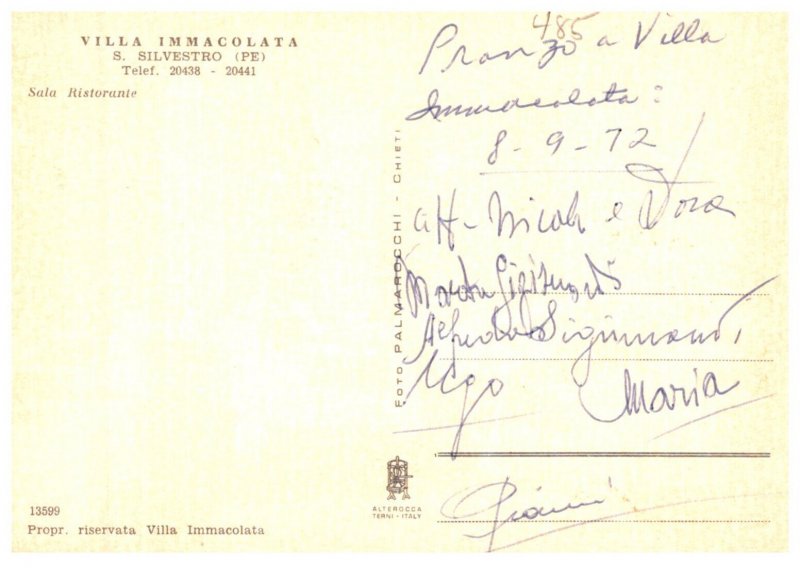 VILLA IMMACOLATA
S. SILVESTRO (PE)
Telef. 20438 - 20441
Sala Ristorante
485
Pranzo a Villa
Immacolata:
8-9-72
aff- Nicola e Dora
Marta
Alfredo
Ugo Maria
Gianni
FOTO PALMAROCCHI - CHIETI
ALTEROCCA
TERNI - ITALY
13599
Propr. riservata Villa Immacolata